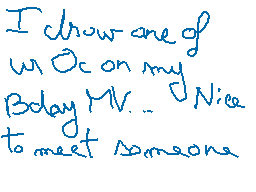 I drow one of
ur Oc on my
Bday MV... Nice
to meet someone